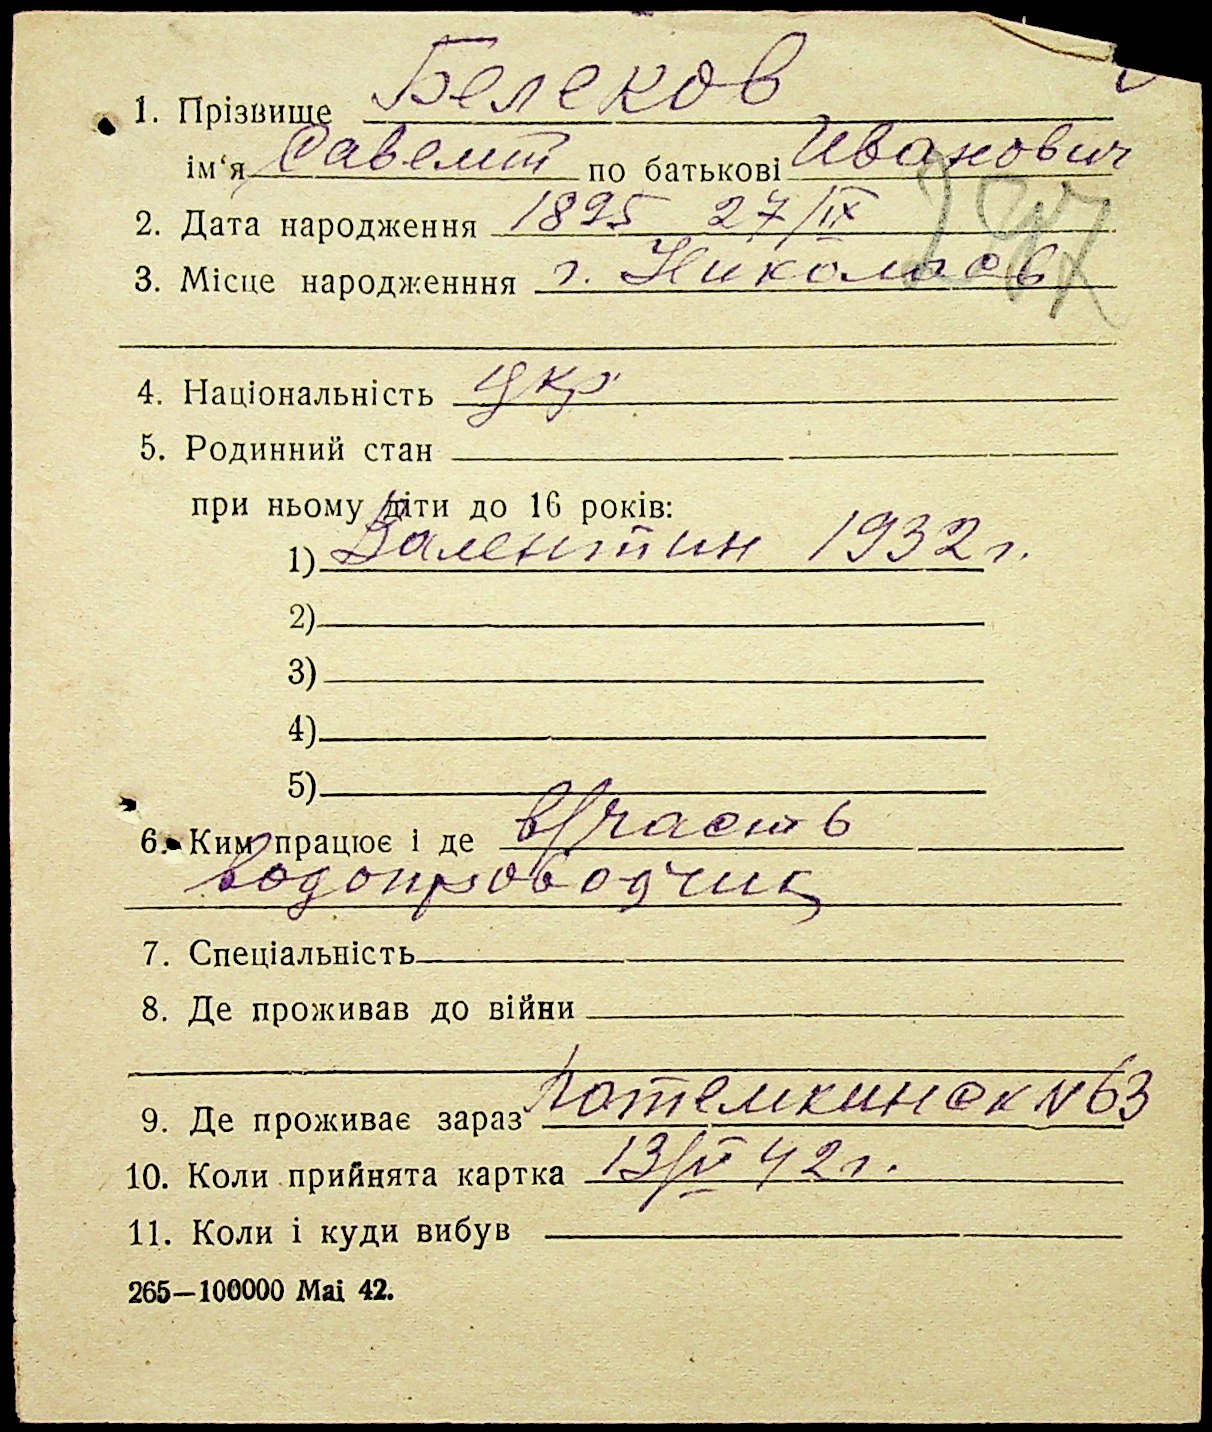 1. Прізвище Белеков
ім‘я Савелит по батькові Иванович
2. Дата народження 1895 27/IX
3. Місце народженння г. Николаев
297
4. Національність укр.
5. Родинний стан
при ньому діти до 16 років:
1) Валентин 1932 г.
2)
3)
4)
5)
6. Ким працює і де в/часть
водопроводчик
7. Спеціальність
8. Де проживав до війни
9. Де проживає зараз Потемкинск N 63
10. Коли прийнята картка 13/V 42 г.
11. Коли і куди вибув
265—100000 Mai 42.